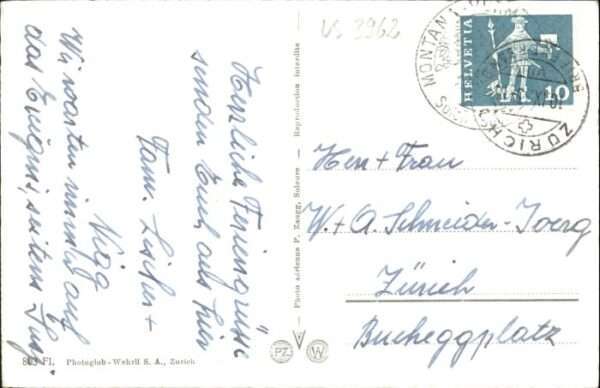 VS 3962
HELVETIA
10
MONTANA
ZÜRICH
Herzliche Feriengrüsse
senden Euch als hier
Fam.
Wir warten immer auf
das Ereignis, seitens
Herr + Frau
W. + A. Schneider-Joerg
Zürich
Bucheggplatz
Photo aérienne P. Zaugg, Soleure — Reproduction interdite
PZ
W
803 FL Photoglob-Wehrli S. A., Zurich